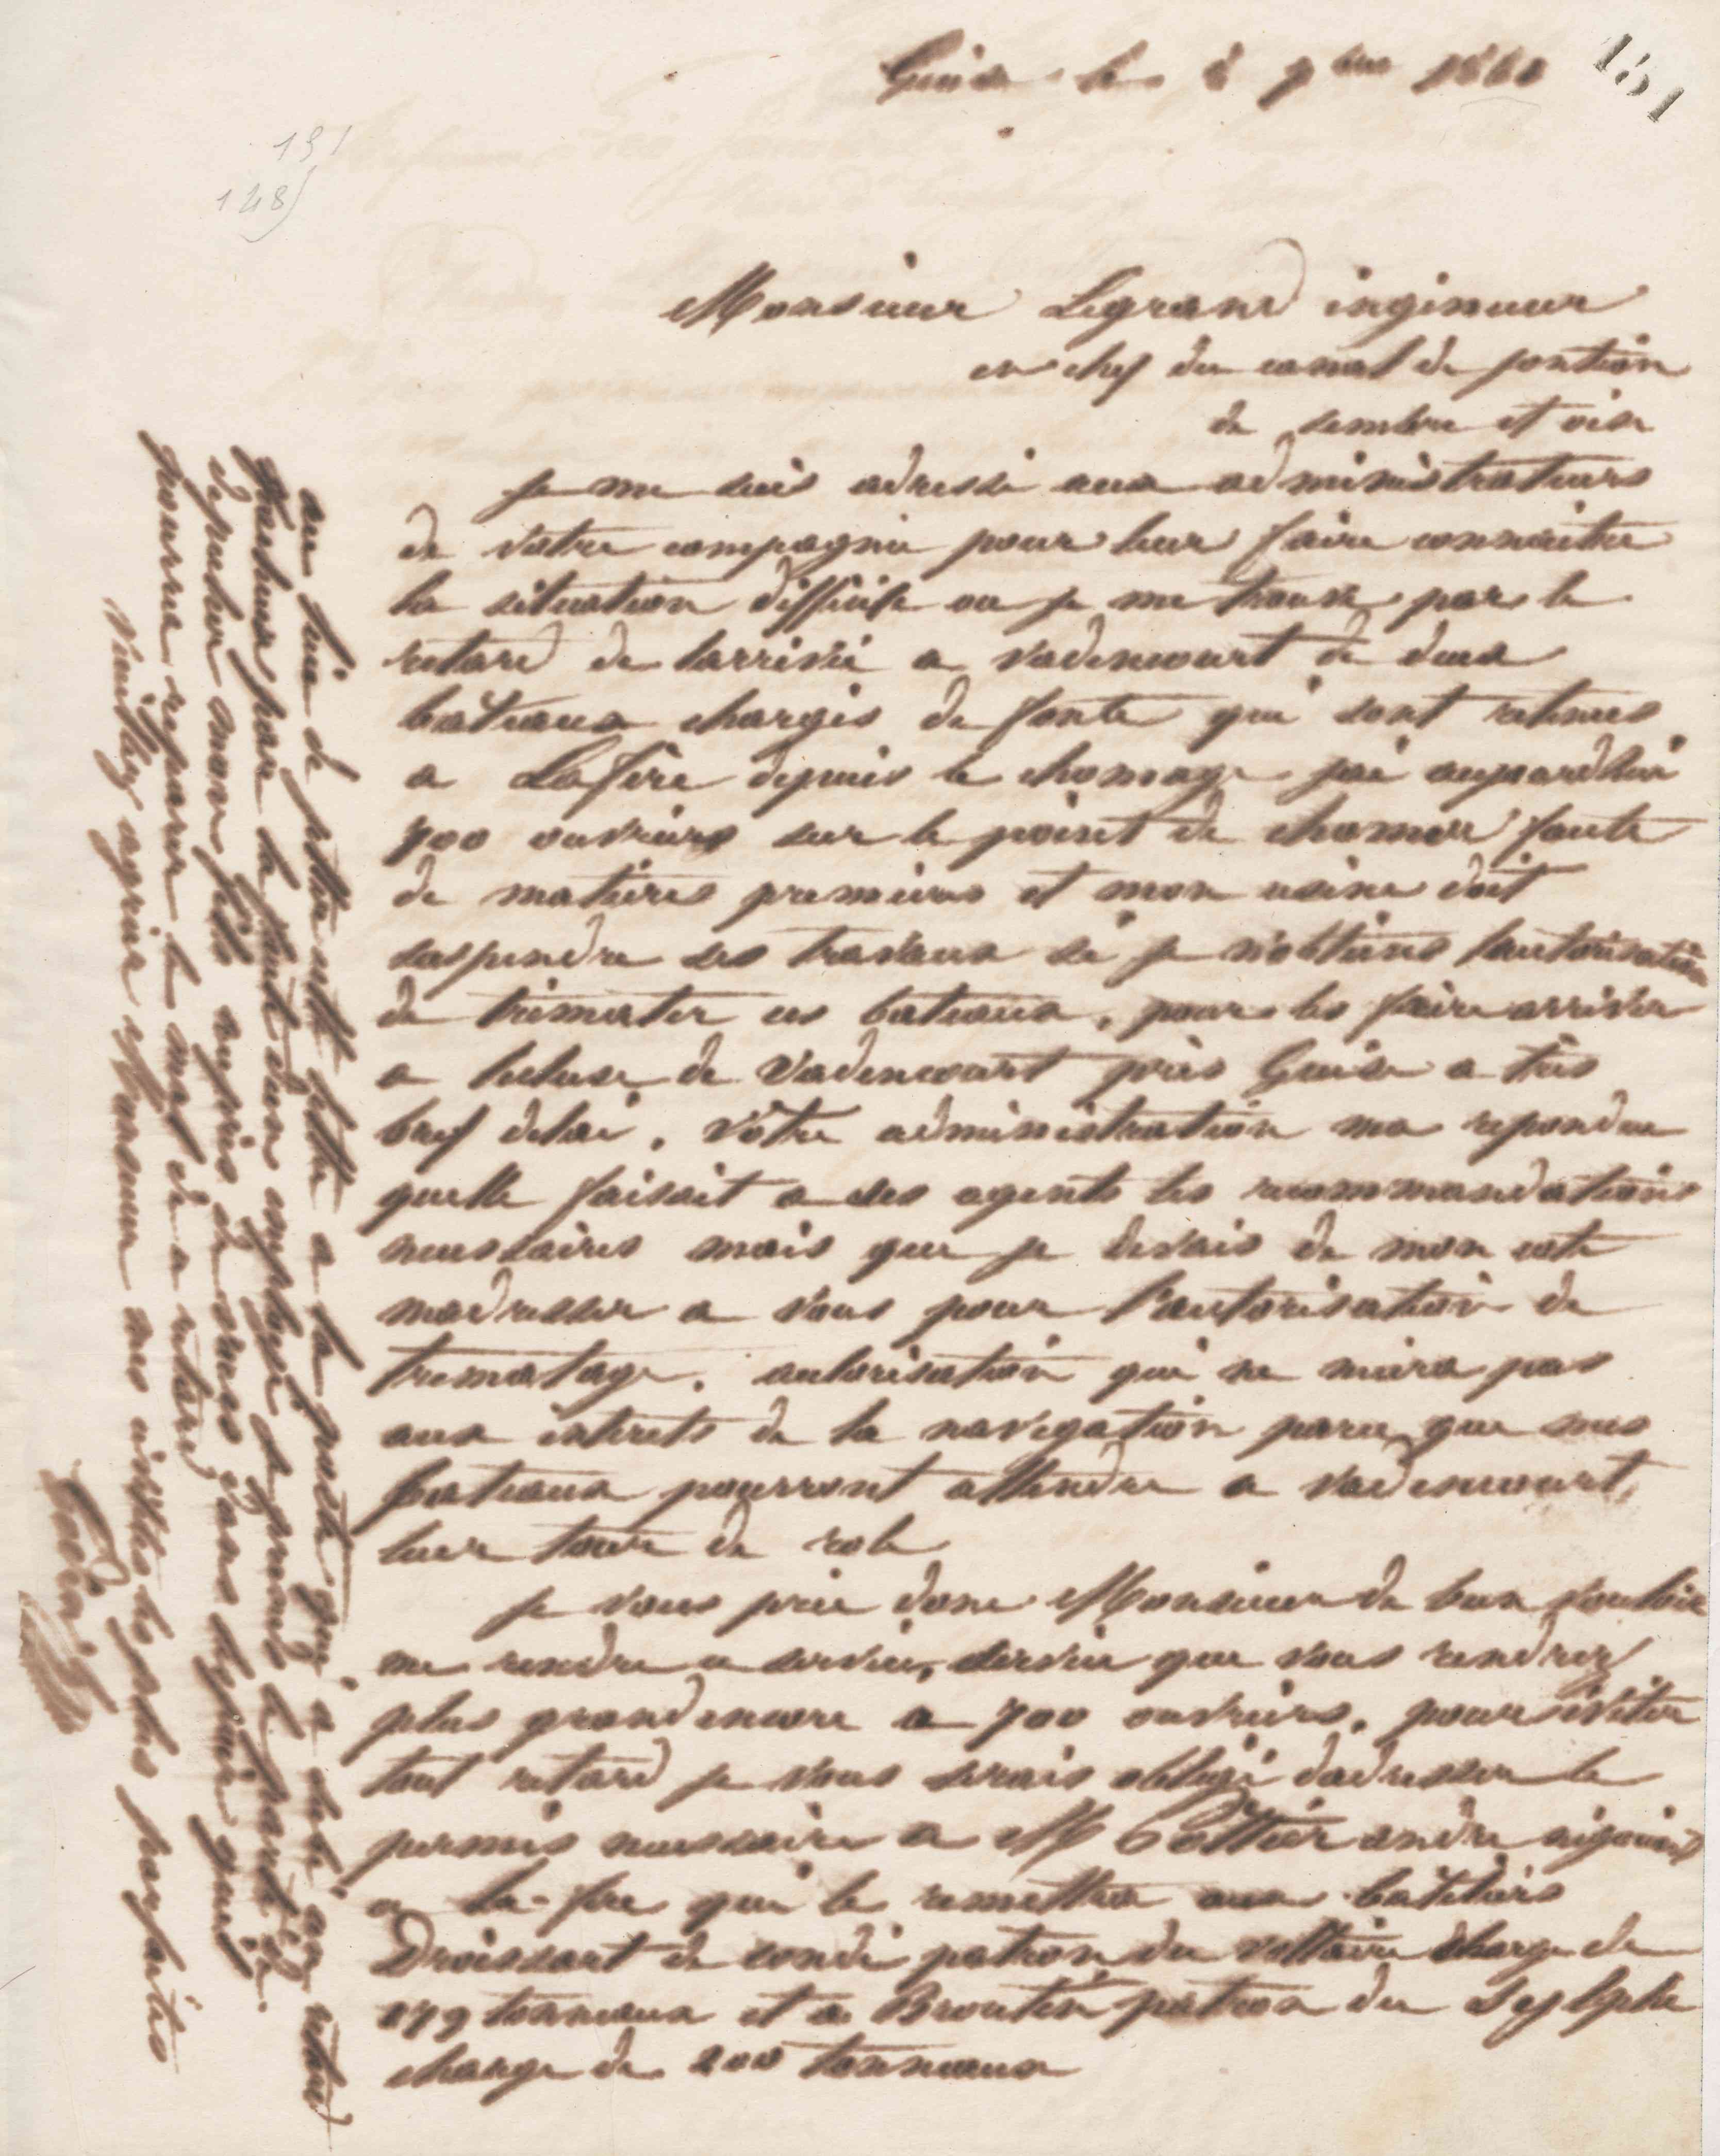 151
Guise le 8 9bre 1861
131
128)
Monsieur Legrand ingenieur
en chef du canal de jontion
de sembre et oise
je me suis adressé aux administrateurs
de votre compagnie pour leur faire connaitre
la situation difficile ou je me trouve par le
retard de larrivée a vadencourt de deux
bateaux chargés de fonte qui sont retenus
a Lafère depuis le chomage jai aujourdhui
700 ouvriers sur le point de chomer faute
de matières premieres et mon usine doit
suspendre ses travaux si je n'obtiens lautorisation
de trémater ces bateaux, pour les faire arriver
a lecluse de Vadencourt près Guise a très
bref delai. Votre administration ma repondu
quelle faisait a ses agents les recommandations
necessaires mais que je devais de mon coté
madresser a vous pour l'autorisation de
trematage. autorisation qui ne nuira pas
aux interets de la navigation parce que mes
bateaux pourront attendre a vadencourt
leur tour de role
je vous prie donc Monsieur de bien vouloir
me rendre ce service, service que vous rendrez
plus grand encore a 700 ouvriers. pour éviter
tout retard je vous serais obligé dadresser le
permis necessaire a M Cottier andré
a la-fere qui le remettra aux bateliers
Droissart de condé patron du voltaire charge de
179 tonneaux et a Broutin patron du Sylphe
charge de 200 tonneaux
au lieu de mettre cette lettre a la poste qui a deja un retard
facheux par la faute dun employé je prends le parti de
depecher mon fils auprès de vous dans lespoir quil
pourra reparer le mal de ce retard
Veuillez agréer Monsieur mes civilités les plus parfaites
Godin